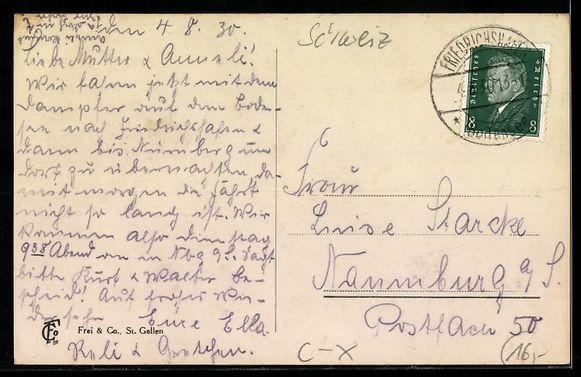 den 4. 8. 30.
Liebe Mutter & Anneli!
Wir fahren jetzt mit dem
Dampfer auf dem Boden-
see nach Friedrichshafen &
dann bis Nürnberg um
dort zu übernachten, da-
mit morgen die Fahrt
nicht so lang ist. Wir
kommen also Dienstag
9³⁸ Abend an in Nbg a/S. Sagt
bitte Kurt & Walter Be-
scheid! Auf frohes Wie-
dersehn Eure Ella
Reli & Gretchen.
Frei & Co., St. Gallen
Schweiz
FRIEDRICHSHAFEN
DEUTSCHES REICH
8
6
Frau
Luise Starcke
Naumburg a/S.
Postfach 50
C-X
16,-